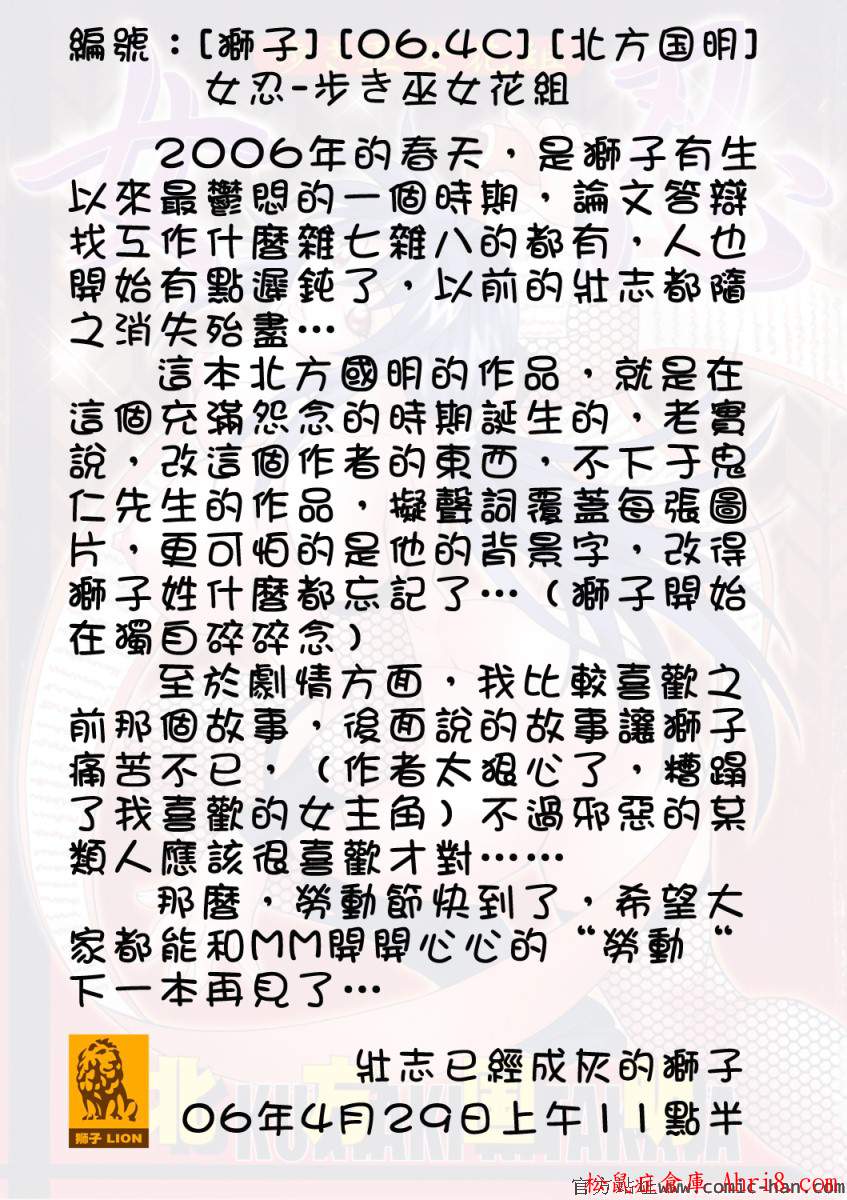 編號：[獅子] [06.4C] [北方国明]
女忍-步き巫女花組
2006年的春天，是獅子有生
以來最鬱悶的一個時期，論文答辯
找工作什麼雜七雜八的都有，人也
開始有點遲鈍了，以前的壯志都隨
之消失殆盡…
這本北方國明的作品，就是在
這個充滿怨念的時期誕生的，老實
說，改這個作者的東西，不下于鬼
仁先生的作品，擬聲詞覆蓋每張圖
片，更可怕的是他的背景字，改得
獅子姓什麼都忘記了…（獅子開始
在獨自碎碎念）
至於劇情方面，我比較喜歡之
前那個故事，後面說的故事讓獅子
痛苦不已，（作者太狠心了，糟蹋
了我喜歡的女主角）不過邪惡的某
類人應該很喜歡才對……
那麼，勞動節快到了，希望大
家都能和MM開開心心的“勞動“
下一本再見了…
壯志已經成灰的獅子
06年4月29日上午11點半
獅子 LION
北方国明
www.comic-han.com
松鼠症倉庫 Ahri8.com